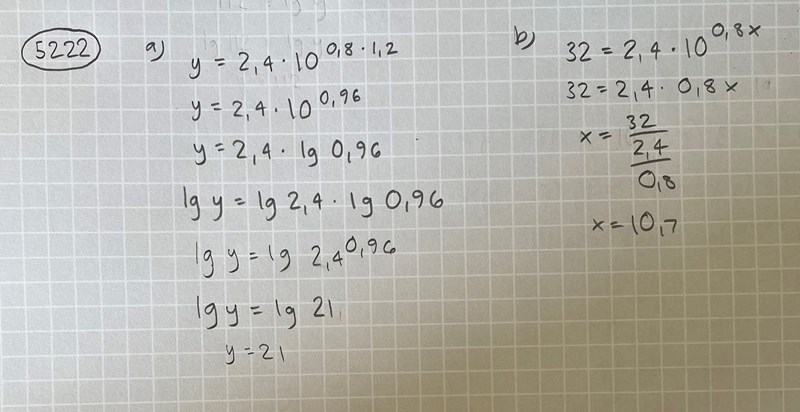 5222
a)
y = 2,4 · 10^0,8 · 1,2
y = 2,4 · 10^0,96
y = 2,4 · lg 0,96
lg y = lg 2,4 · lg 0,96
lg y = lg 2,4^0,96
lg y = lg 21
y = 21
b)
32 = 2,4 · 10^0,8x
32 = 2,4 · 0,8x
x = 32
2,4
0,8
x = 10,7